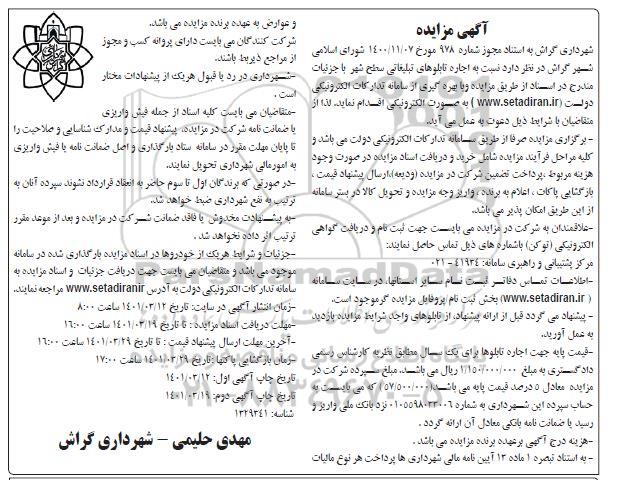 آگهی مزایده
شهرداری گراش به استناد مجوز شماره ۹۷۸ مورخ ۱۴۰۰/۱۱/۰۷ شورای اسلامی
شهر گراش در نظر دارد نسبت به اجاره تابلوهای تبلیغاتی سطح شهر با جزئیات
مندرج در اسناد از طریق مزایده وبا بهره گیری از سامانه تدارکات الکترونیکی
دولت (www.setadiran.ir ) به صورت الکترونیکی اقدام نماید. لذا از
متقاضیان با شرایط ذیل دعوت به عمل می آید.
- برگزاری مزایده صرفا از طریق سامانه تدارکات الکترونیکی دولت می باشد و
کلیه مراحل فرآیند مزایده شامل خرید و دریافت اسناد مزایده در صورت وجود
هزینه مربوط ،پرداخت تضمین شرکت در مزایده (ودیعه)،ارسال پیشنهاد قیمت ،
بازگشایی پاکات ، اعلام به برنده ، واریز وجه مزایده و تحویل کالا در بستر سامانه
از این طریق امکان پذیر می باشد.
-علاقمندان به شرکت در مزایده می بایست جهت ثبت نام و دریافت گواهی
الکترونیکی (توکن) باشماره های ذیل تماس حاصل نمایند:
مرکز پشتیبانی و راهبری سامانه: ۴۱۹۳۴ - ۰۲۱
-اطلاعات تماس دفاتر ثبت نام سایر استانها، در سایت سامانه
( www.setadiran.ir) بخش ثبت نام /پروفایل مزایده گرموجود است.
- پیشنهاد می گردد قبل از ارائه پیشنهاد، از تابلوهای واجد شرایط مزایده بازدید
به عمل آورید.
-قیمت پایه جهت اجاره تابلوها برای یک سال مطابق نظریه کارشناس رسمی
دادگستری به مبلغ ۱/۱۵۰/۰۰۰/۰۰۰ ریال می باشد. مبلغ سپرده شرکت در
مزایده معادل ۵ درصد قیمت پایه می باشد(۵۷/۵۰۰/۰۰۰) که می بایست به
حساب سپرده این شهرداری به شماره ۰۱۰۵۵۹۸۰۳۳۰۰۶ نزد بانک ملی واریز و
رسید یا ضمانت نامه بانکی معادل آن ارائه گردد .
-هزینه درج آگهی برعهده برنده مزایده می باشد .
- به استناد تبصره ۱ ماده ۱۳ آیین نامه مالی شهرداری ها پرداخت هر نوع مالیات
و عوارض به عهده برنده مزایده می باشد.
شرکت کنندگان می بایست دارای پروانه کسب و مجوز
از مراجع ذیربط باشند.
-شهرداری در رد یا قبول هریک از پیشنهادات مختار
است .
-متقاضیان می بایست کلیه اسناد از جمله فیش واریزی
یا ضمانت نامه شرکت در مزایده، پیشنهاد قیمت و مدارک شناسایی و صلاحیت را
تا پایان مهلت مقرر در سامانه ستاد بارگذاری و اصل ضمانت نامه یا فیش واریزی
به امورمالی شهرداری تحویل نمایند.
-در صورتی که برندگان اول تا سوم حاضر به انعقاد قرارداد نشوند سپرده آنان به
ترتیب به نفع شهرداری ضبط خواهد شد.
-به پیشنهادات مخدوش یا فاقد ضمانت شرکت در مزایده و بعد از موعد مقرر
ترتیب اثر داده نخواهد شد .
-جزئیات و شرایط هریک از خودروها در اسناد مزایده بارگذاری شده در سامانه
موجود می باشد و متقاضیان می بایست جهت دریافت جزئیات و اسناد مزایده به
سامانه تدارکات الکترونیکی دولت به آدرس www.setadiranir مراجعه نمایند.
-زمان انتشار آگهی در سایت: تاریخ ۱۴۰۱/۰۳/۱۲ ساعت ۸:۰۰
-مهلت دریافت اسناد مزایده : تا تاریخ ۱۴۰۱/۰۳/۱۹ ساعت ۱۶:۰۰
-آخرین مهلت ارسال پیشنهاد قیمت : تا تاریخ ۱۴۰۱/۰۳/۲۹ ساعت ۱۶:۰۰
-زمان بازگشایی پاکتها :تاریخ ۱۴۰۱/۰۳/۲۹ ساعت ۱۷:۰۰
تاریخ چاپ آگهی اول: ۱۴۰۱/۰۳/۱۲
تاریخ چاپ آگهی دوم: ۱۴۰۱/۰۳/۱۹
شناسه: ۱۳۲۹۳۴۱
مهدی حلیمی – شهرداری گراش